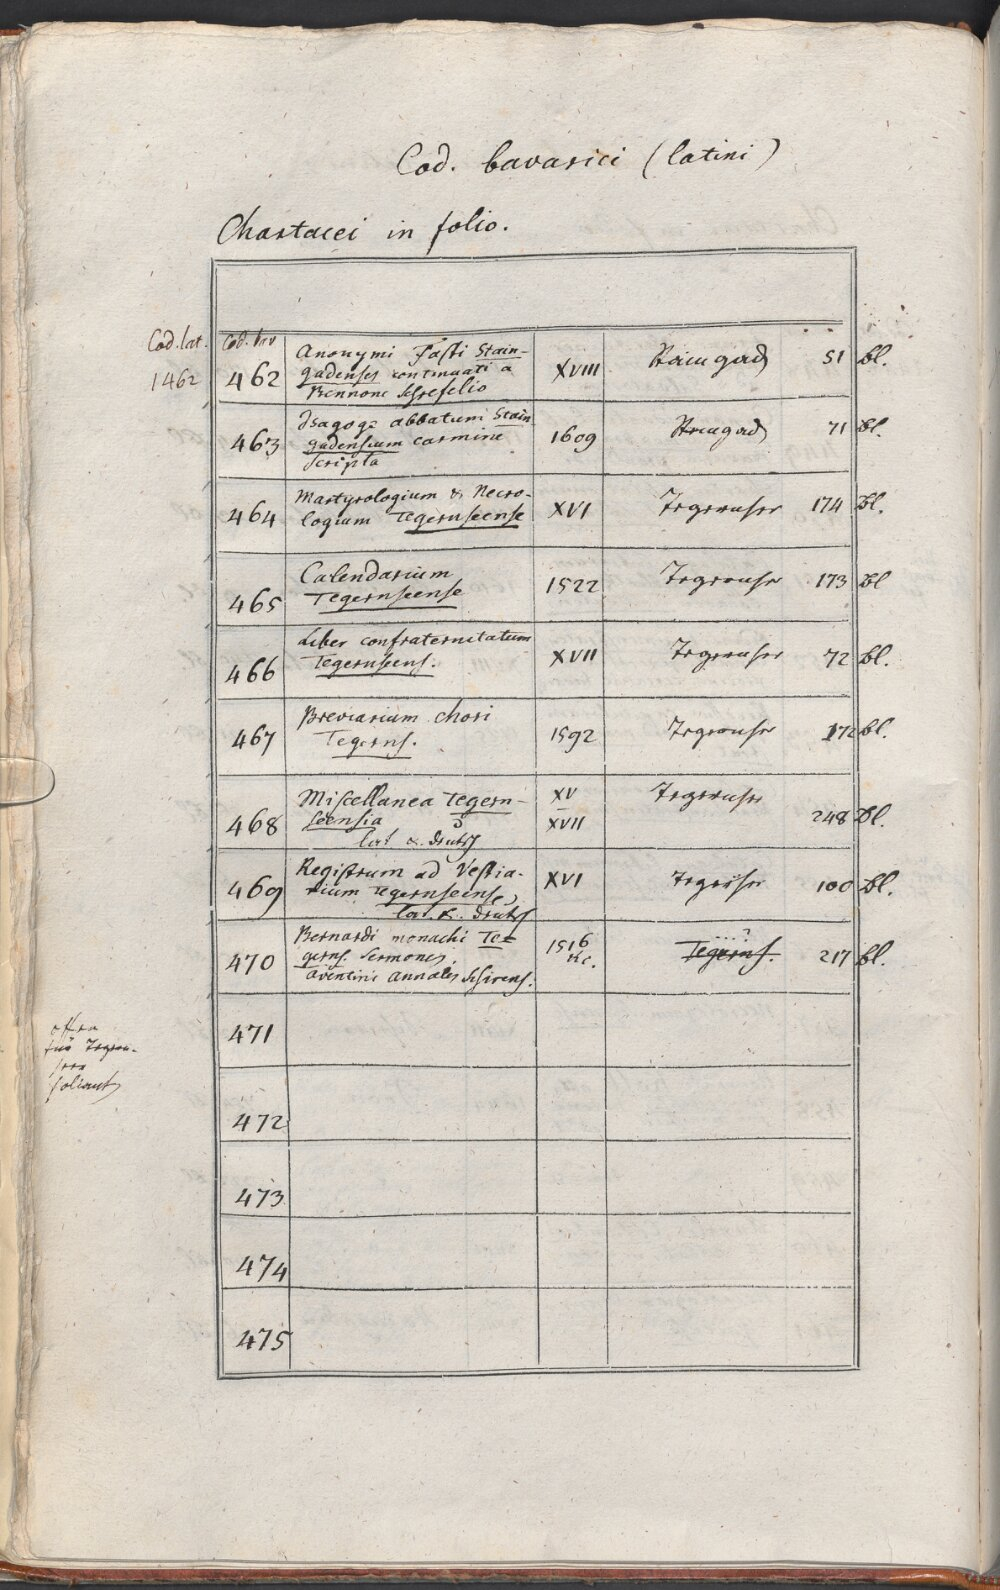 Cod. bavarici (latini)
Chartacei in folio.
Cod. lat. Cod. bav
1462 462 Anonymi Fasti Stain-
gadenses continuati a
Bennone Schefelio XVIII Steingad 51 Bl.
463 Isagoge abbatum Stain
gadensium carmine
scripta 1609 Steingad 71 Bl.
464 Martyrologium & Necro-
logium Tegernseense XVI Tegernsee 174 Bl.
465 Calendarium
Tegernseense 1522 Tegernsee 173 Bl
466 Liber confraternitatum
Tegernseens. XVII Tegernsee 72 Bl.
467 Breviarium chori
Tegerns. 1592 Tegernsee 172 Bl.
468 Miscellanea Tegern-
seensia
lat & deutsch XV
XVII Tegernsee 248 Bl.
469 Registrum ad Vestia-
rium Tegernseense,
lat. & deutsch XVI Tegernsee 100 Bl.
470 Bernardi monachi Te-
gerns. Sermones.
Aventini Annales Schirens. 1516
&c. ...?
Tegerns. 217 Bl.
offen
für Tegern-
seer
foliant
471
472
473
474
475